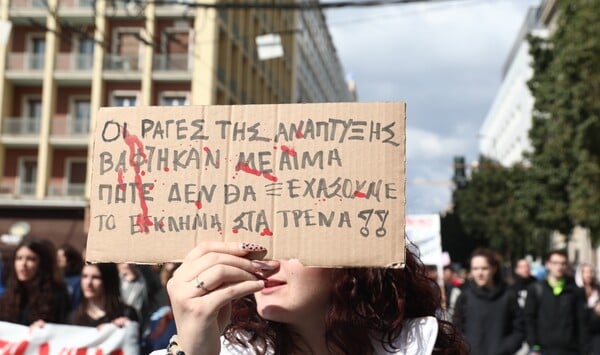 ΟΙ ΡΑΓΕΣ ΤΗΣ ΑΝΑΠΤΥΞΗΣ
ΒΑΦΗΚΑΝ ΜΕ ΑΙΜΑ
ΠΟΤΕ ΔΕΝ ΘΑ ΞΕΧΑΣΟΥΜΕ
ΤΟ ΕΓΚΛΗΜΑ ΣΤΑ ΤΡΕΝΑ!!